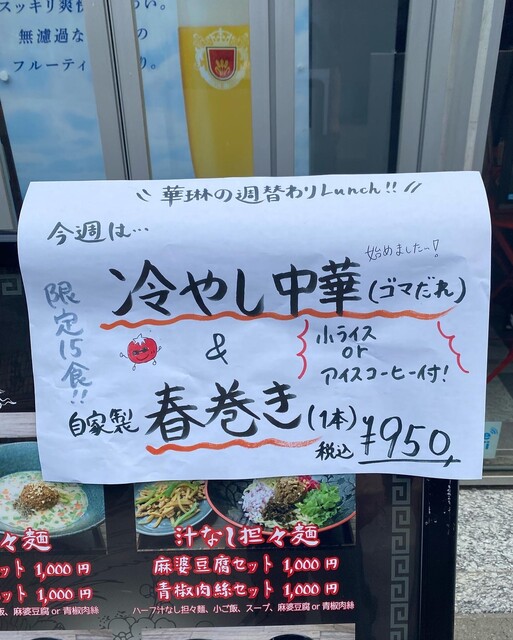 無濾過な
フルーティ
華琳の週替わりLunch!!
今週は…
始めました…!
冷やし中華(ゴマだれ)
限定15食!!
&
小ライス
or
アイスコーヒー付!
自家製 春巻き(1本) 税込 ¥950,
々麺
ット 1,000円
ット 1,000円
飯、麻婆豆腐 or 青椒肉絲
汁なし担々麺
麻婆豆腐セット 1,000円
青椒肉絲セット 1,000円
ハーフ汁なし担々麺、小ご飯、スープ、麻婆豆腐 or 青椒肉絲